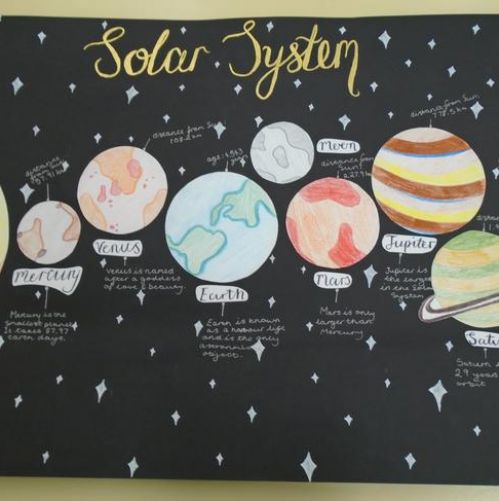 Solar System
distance
from Sun:
57.91 km
Mercury
Mercury is the
smallest planet
It takes 87.97
earth days.
distance from Sun:
Venus
Venus is named
after a goddess
of love & beauty.
age: 4.543
Earth
Earth is known
as a harbour life
and is the only
object.
Moon
distance from
Sun:
227.9
Mars
Mars is only
larger than
Mercury
distance from Sun:
778.5 km
Jupiter
Jupiter is
the largest
in the Solar
System
Satu
Saturn
29 years
orbit